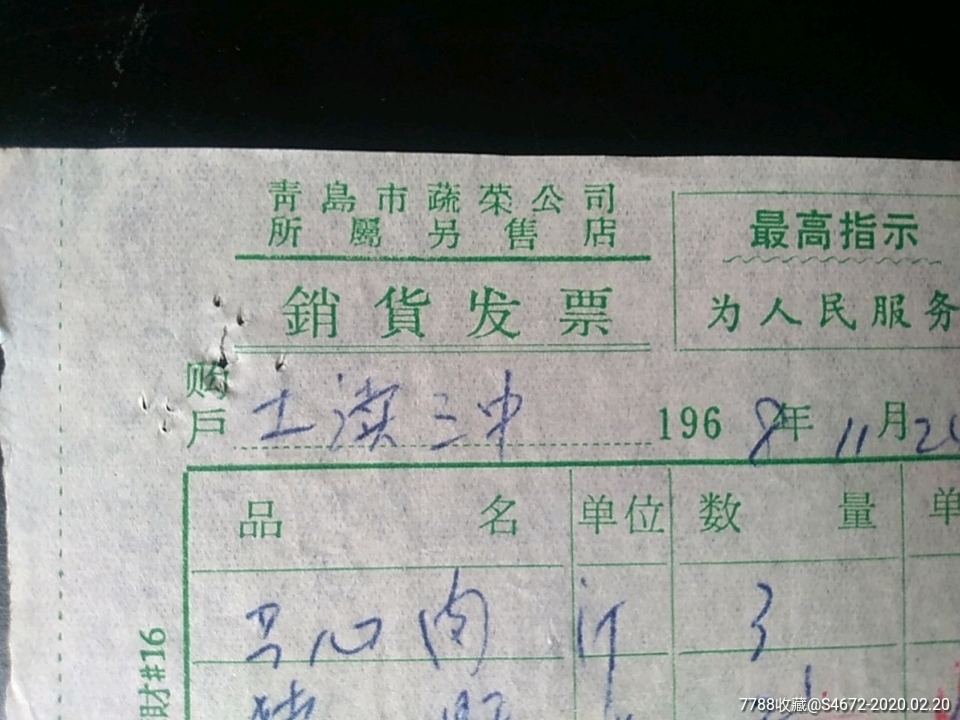 青島市蔬菜公司
所屬另售店
銷貨发票
最高指示
为人民服务
购户 三中 1968年11月2
品名 单位 数量 单
心肉 斤 3
财#16
7788收藏@S4672-2020.02.20